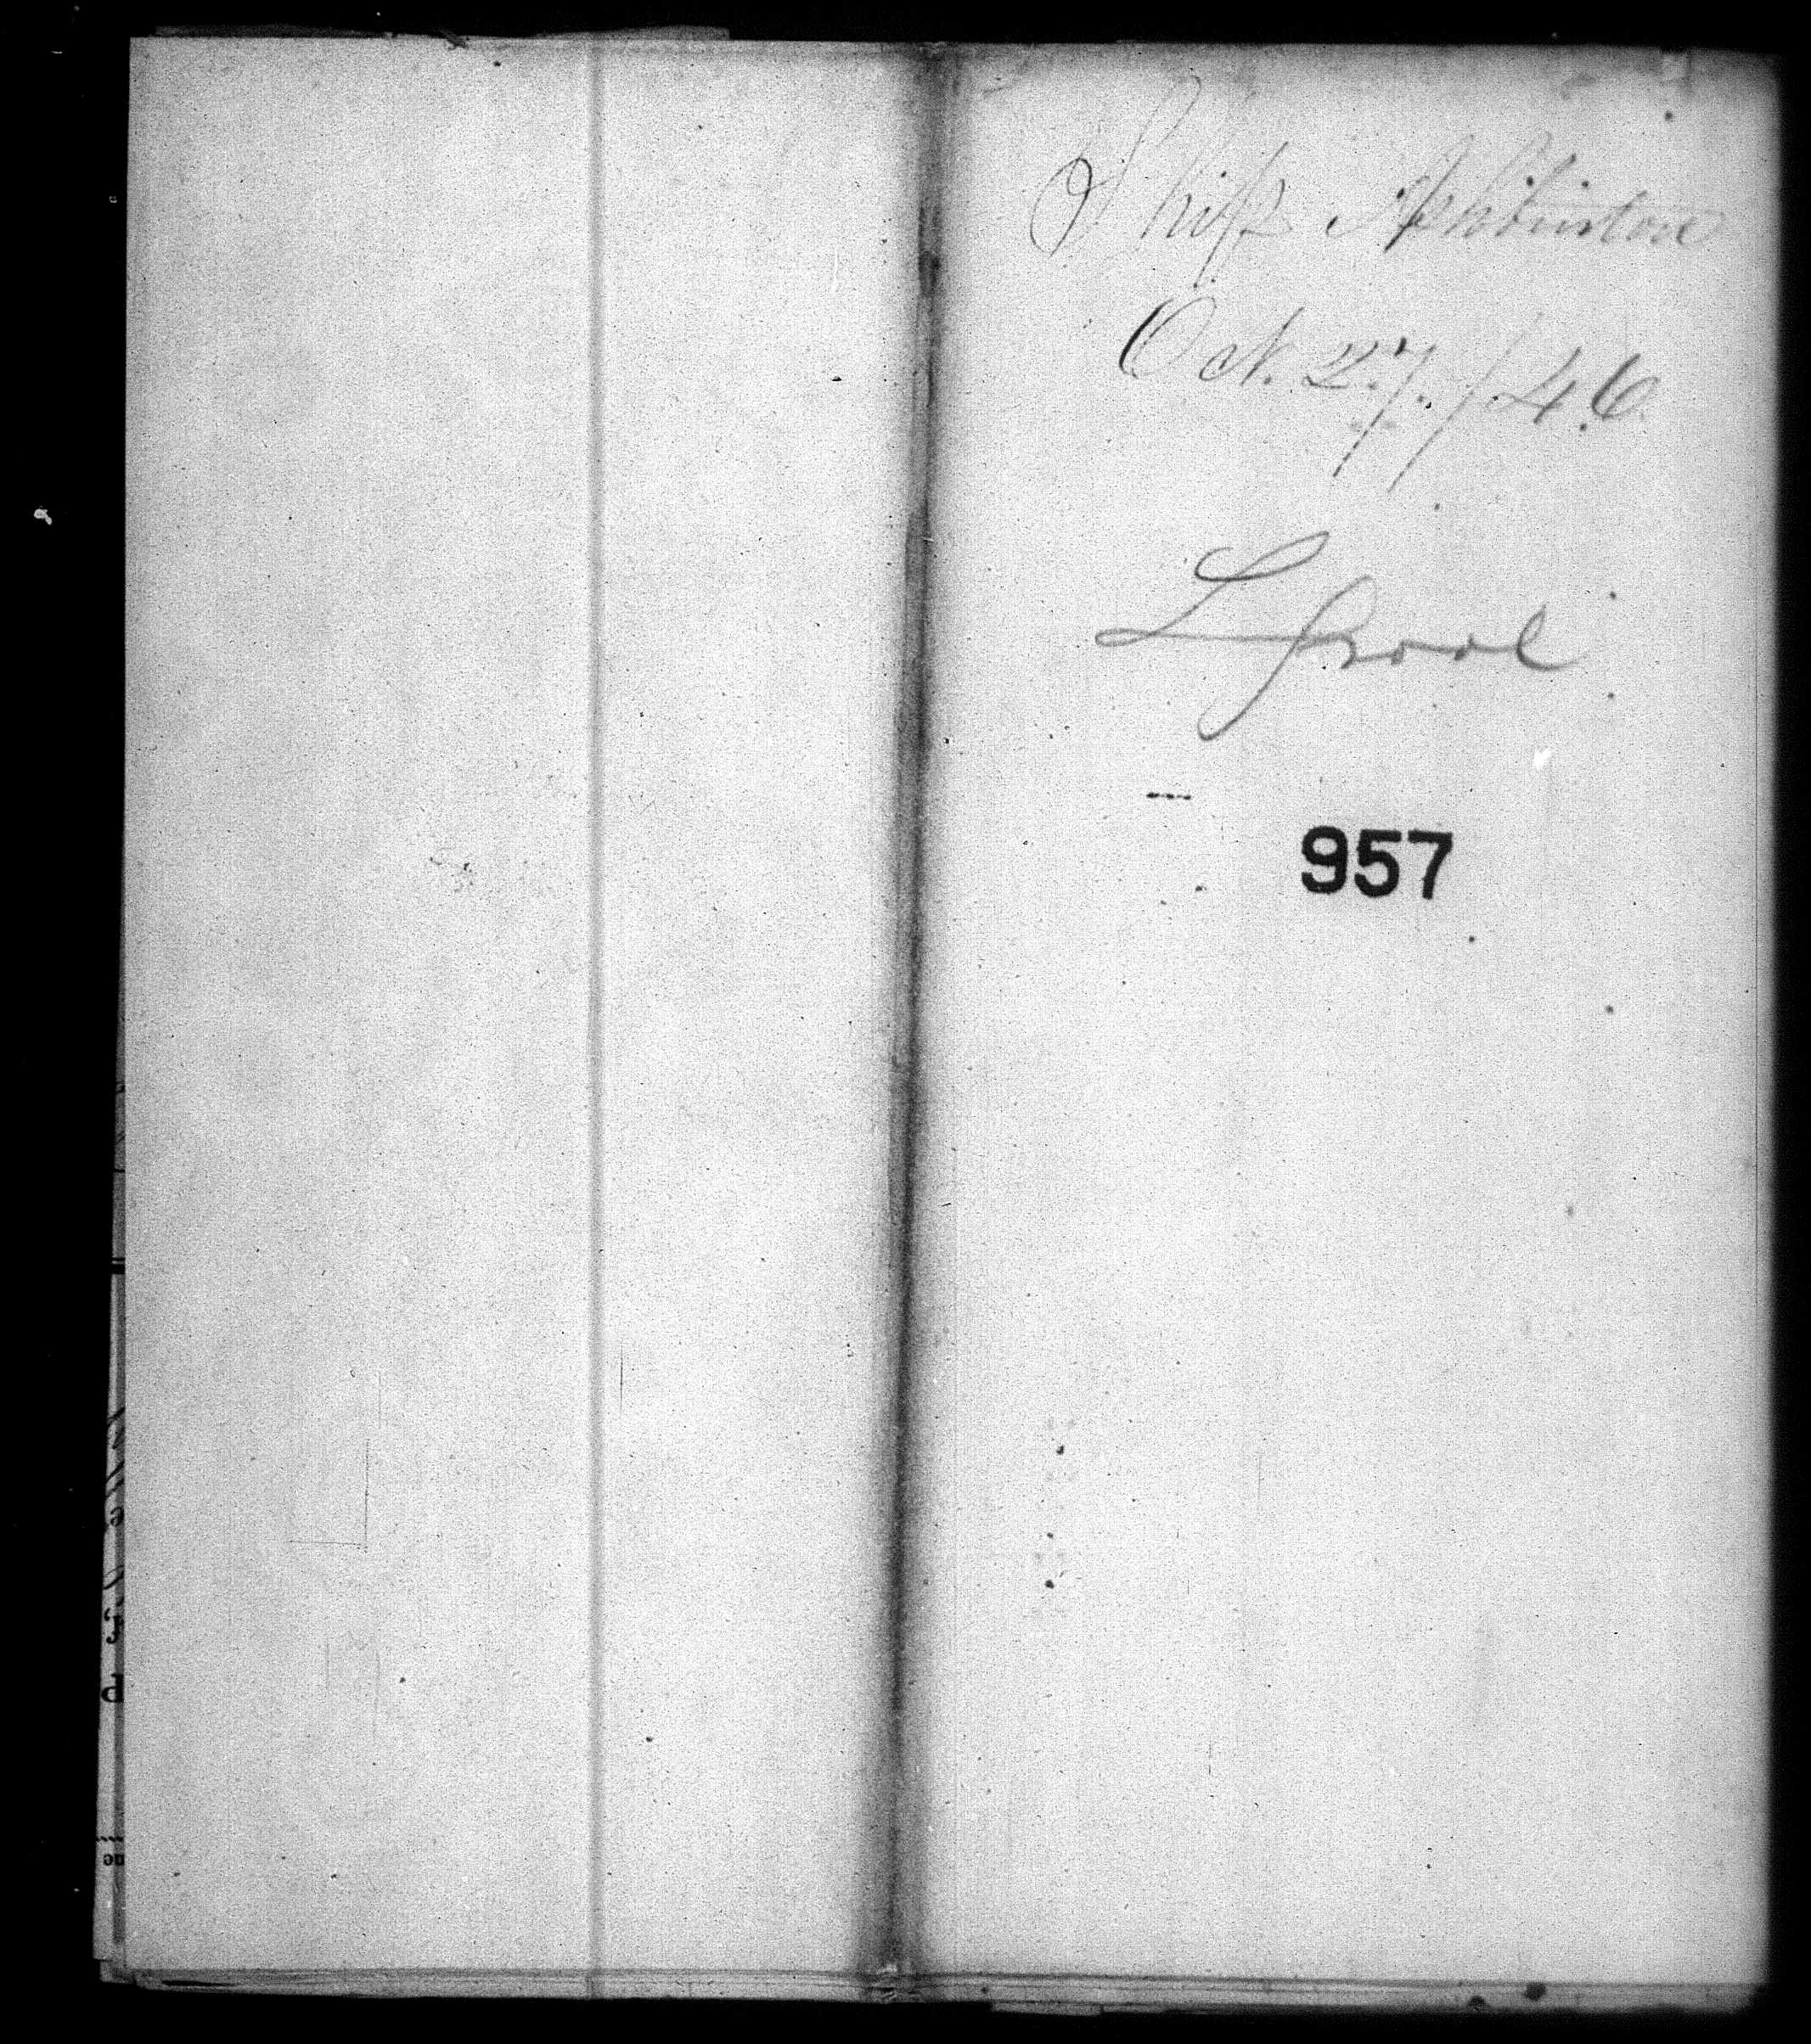 Ship Ashburton
Oct. 27/46
Lpool
957